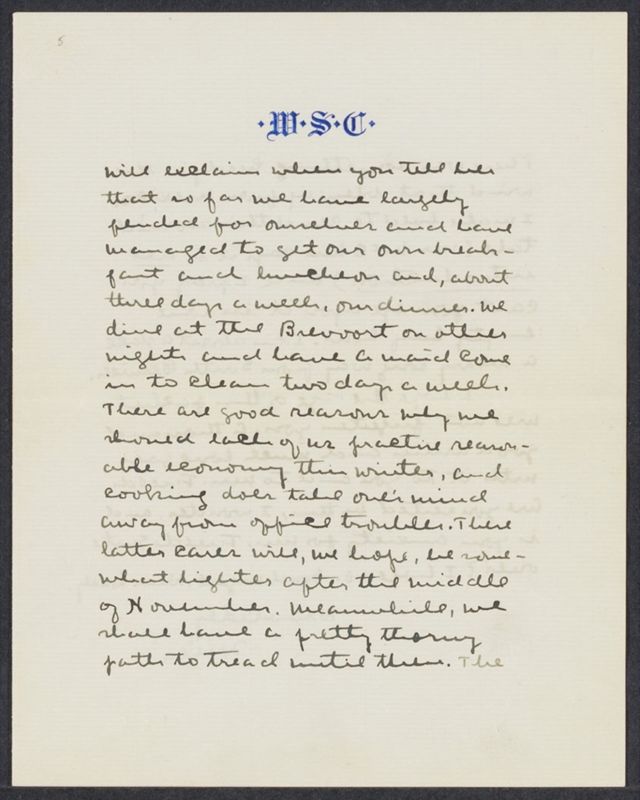 5
·W·S·C·
will exclaim when you tell her
that so far we have largely
fended for ourselves and have
managed to get our own break-
fast and luncheon and, about
three days a week, our dinner. We
dine at the Brevoort on other
nights and have a maid come
in to clean two days a week.
There are good reasons why we
should each of us practise reason-
able economy this winter, and
cooking does take one's mind
away from office troubles. These
latter cares will, we hope, be some-
what lighter after the middle
of November. Meanwhile, we
shall have a pretty thorny
path to tread until then. The